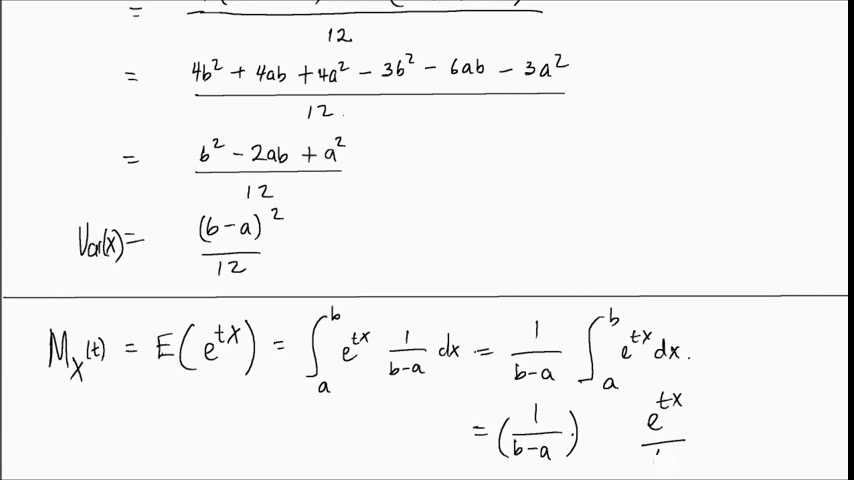 =
12
= 4b² + 4ab + 4a² - 3b² - 6ab - 3a²
12.
= b² - 2ab + a²
12
Var(x) = (b-a)²
12
M_X(t) = E(e^{tX}) = ∫_a^b e^{tx} 1/(b-a) dx = 1/(b-a) ∫_a^b e^{tx} dx.
= (1/(b-a)) e^{tx}